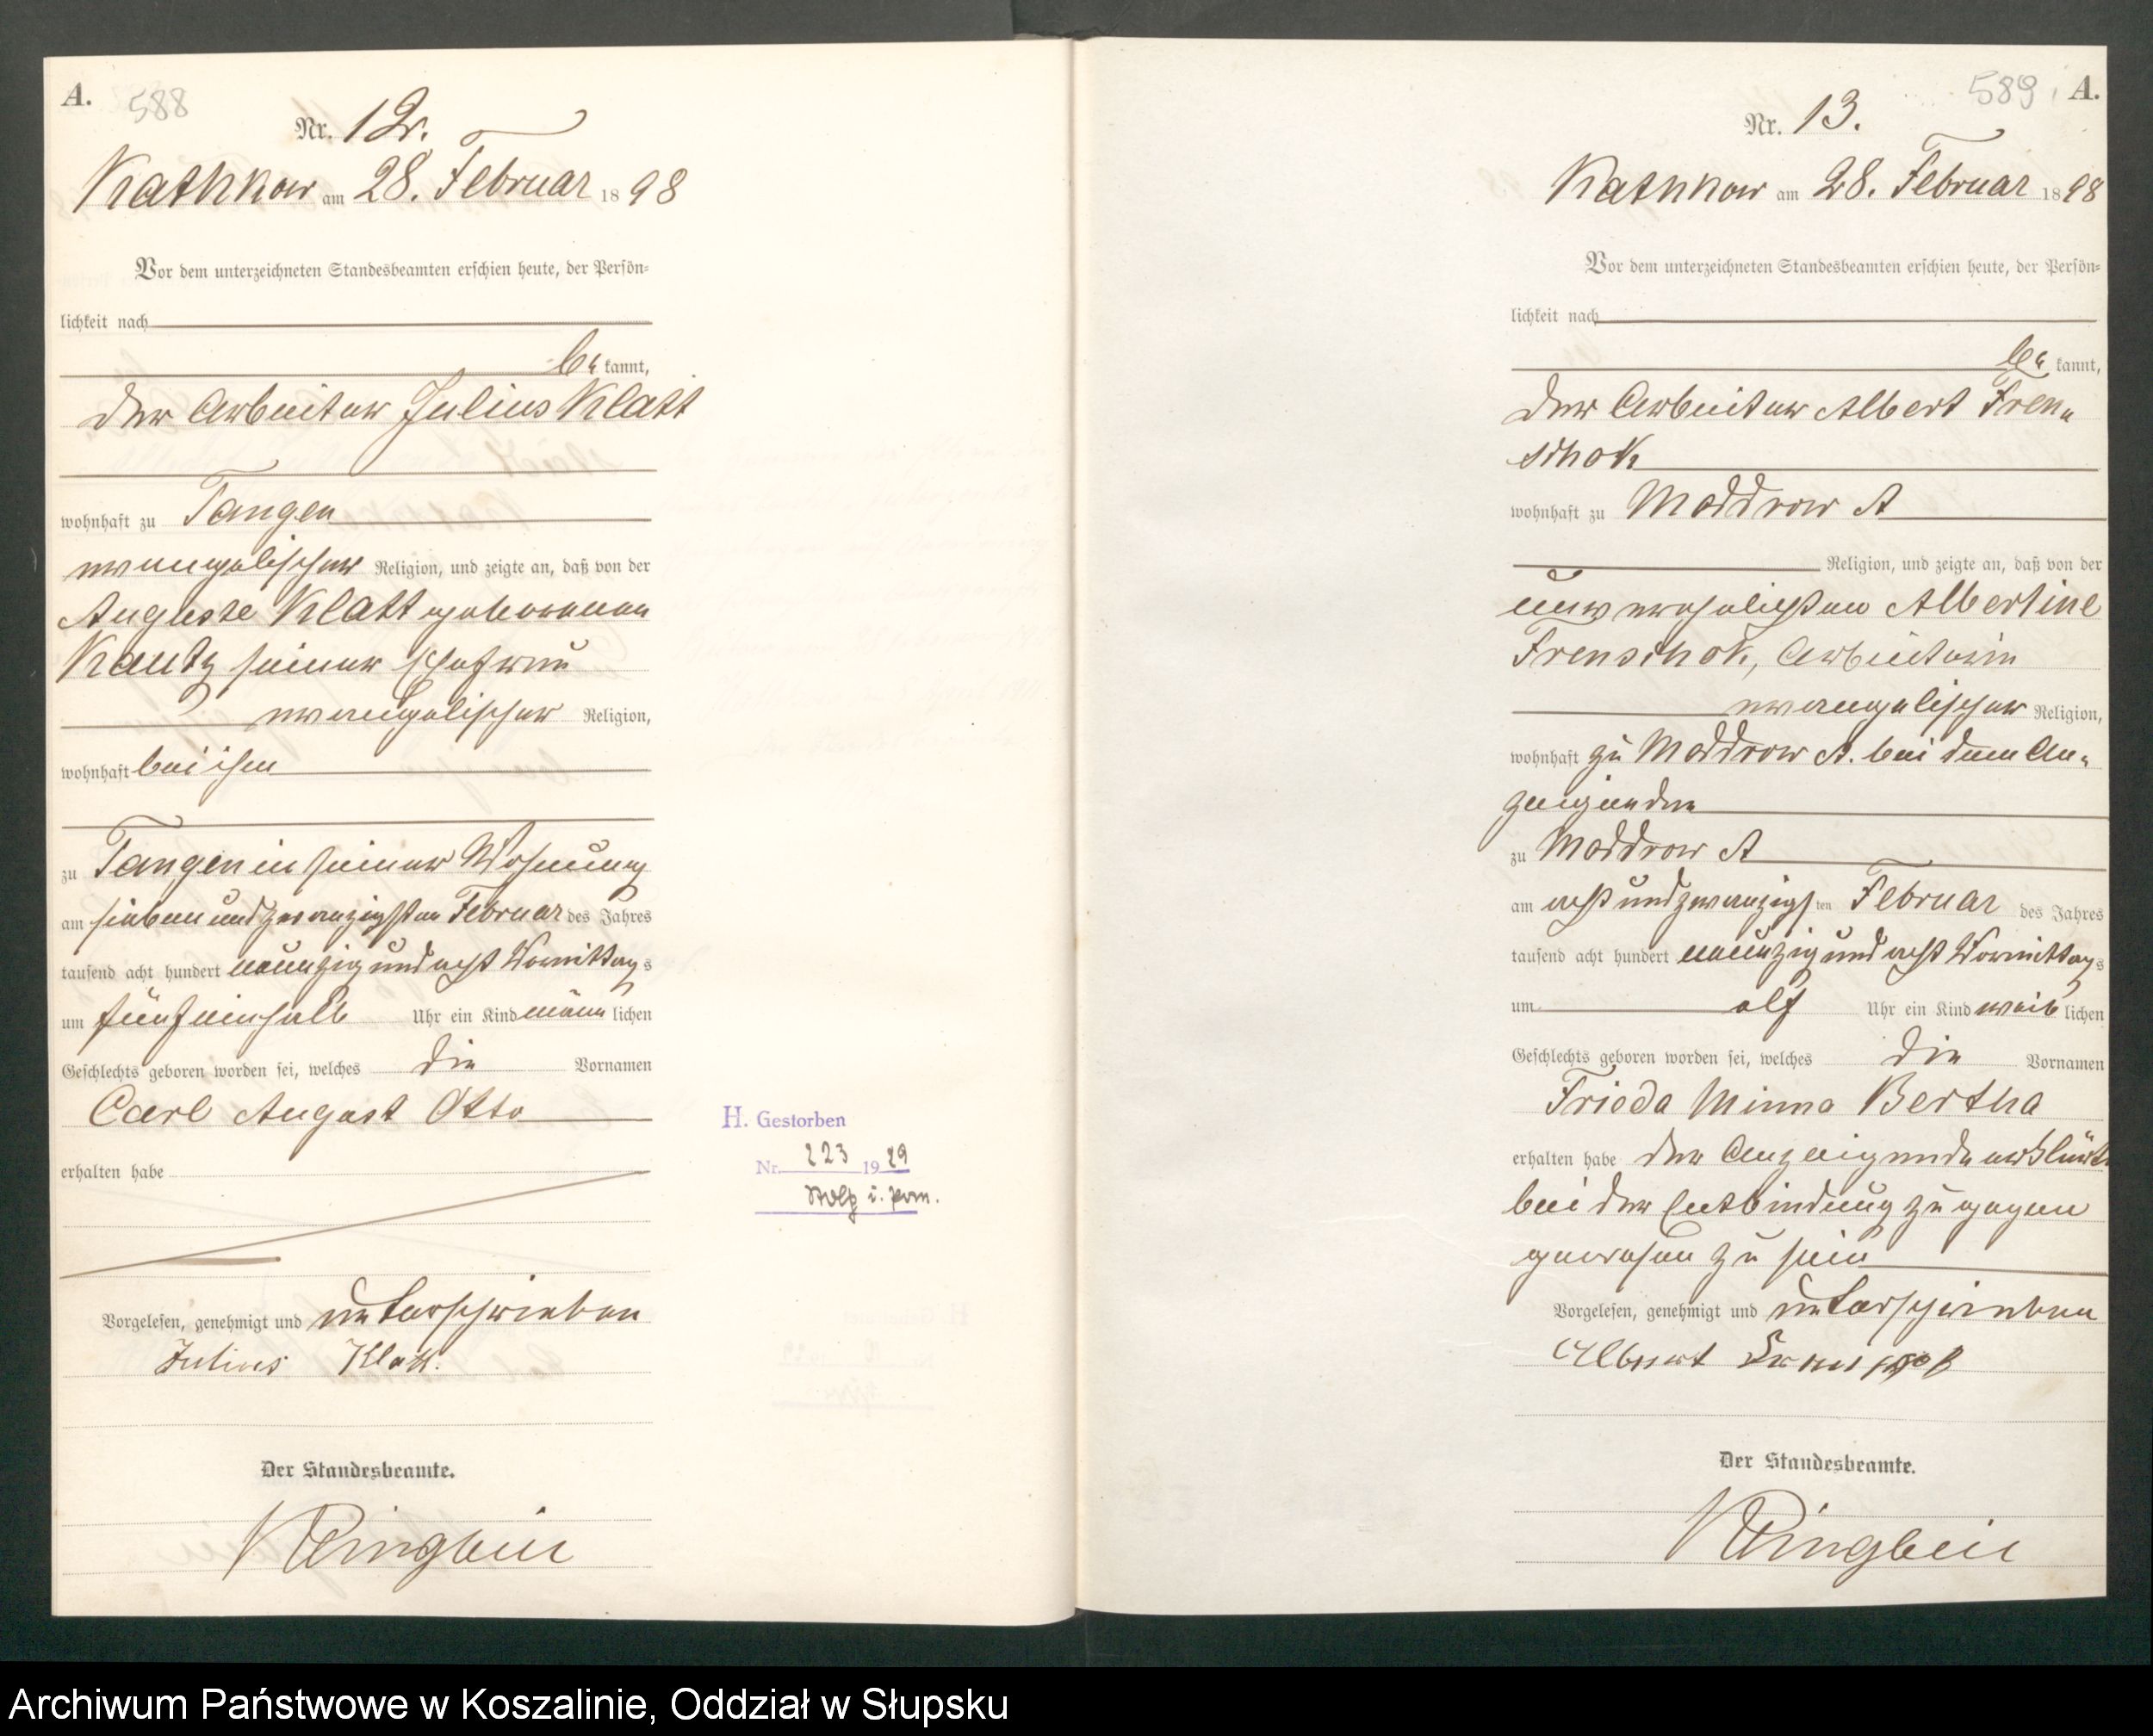 A.
588
Nr. 12.
Kathkow am 28. Februar 1898
Vor dem unterzeichneten Standesbeamten erschien heute, der Persön-
lichkeit nach
be kannt,
der Arbeiter Julius Klatt
wohnhaft zu Tangen
evangelischer Religion, und zeigte an, daß von der
Auguste Klatt geborenen
Kautz seiner Ehefrau
evangelischer Religion,
wohnhaft bei ihm
zu Tangen in seiner Wohnung
am siebenundzwanzigsten Februar des Jahres
tausend acht hundert neunzig und acht Vormittags
um fünfeinhalb Uhr ein Kind männlichen
Geschlechts geboren worden sei, welches die Vornamen
Carl August Otto
erhalten habe
Vorgelesen, genehmigt und unterschrieben
Julius Klatt.
Der Standesbeamte.
Klingbeil
H. Gestorben
Nr. 223 1929
Stolp i. Pom.
589
A.
Nr. 13.
Kathkow am 28. Februar 1898
Vor dem unterzeichneten Standesbeamten erschien heute, der Persön-
lichkeit nach
be kannt,
der Arbeiter Albert Fren-
schok
wohnhaft zu Moddrow A
Religion, und zeigte an, daß von der
unverehelichten Albertine
Frenschok, Arbeiterin
evangelischer Religion,
wohnhaft zu Moddrow A. bei dem An-
zeigenden
zu Moddrow A
am acht und zwanzigsten Februar des Jahres
tausend acht hundert neunzig und acht Vormittags
um elf Uhr ein Kind weiblichen
Geschlechts geboren worden sei, welches die Vornamen
Frieda Minna Bertha
erhalten habe der Anzeigende erklärte
bei der Entbindung zugegen
gewesen zu sein
Vorgelesen, genehmigt und unterschrieben
Albert Frenschok
Der Standesbeamte.
Klingbeil
Archiwum Państwowe w Koszalinie, Oddział w Słupsku